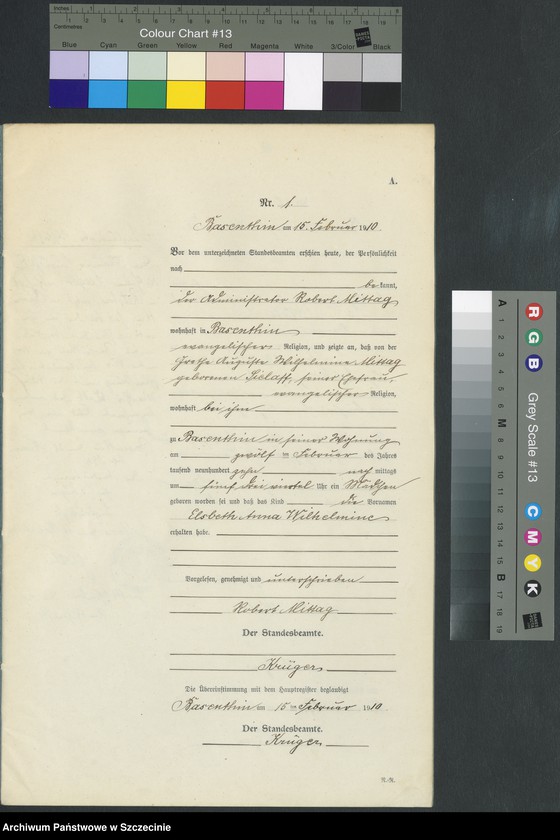 Colour Chart #13
Blue Cyan Green Yellow Red Magenta White 3/Color Black
A.
Nr. 1.
Basenthin am 15. Februar 1910.
Vor dem unterzeichneten Standesbeamten erschien heute, der Persönlichkeit
nach
bekannt,
der Administrator Robert Mittag
wohnhaft in Basenthin
evangelischer Religion, und zeigte an, daß von der
Grethe Auguste Wilhelmine Mittag
geborenen Sielaff, seiner Ehefrau,
evangelischer Religion,
wohnhaft bei ihm
zu Basenthin in seiner Wohnung
am zwölften Februar des Jahres
tausend neunhundert zehn nachmittags
um fünf drei viertel Uhr ein Mädchen
geboren worden sei und daß das Kind die Vornamen
Elsbeth Anna Wilhelmine
erhalten habe.
Vorgelesen, genehmigt und unterschrieben
Robert Mittag
Der Standesbeamte.
Krüger
Die Übereinstimmung mit dem Hauptregister beglaubigt
Basenthin am 15 ten Februar 1910
Der Standesbeamte.
Krüger
Grey Scale #13
R G B C M Y K
A 1 2 3 4 5 6 M 8 9 10 11 12 13 14 15 B 17 18 19
Archiwum Państwowe w Szczecinie